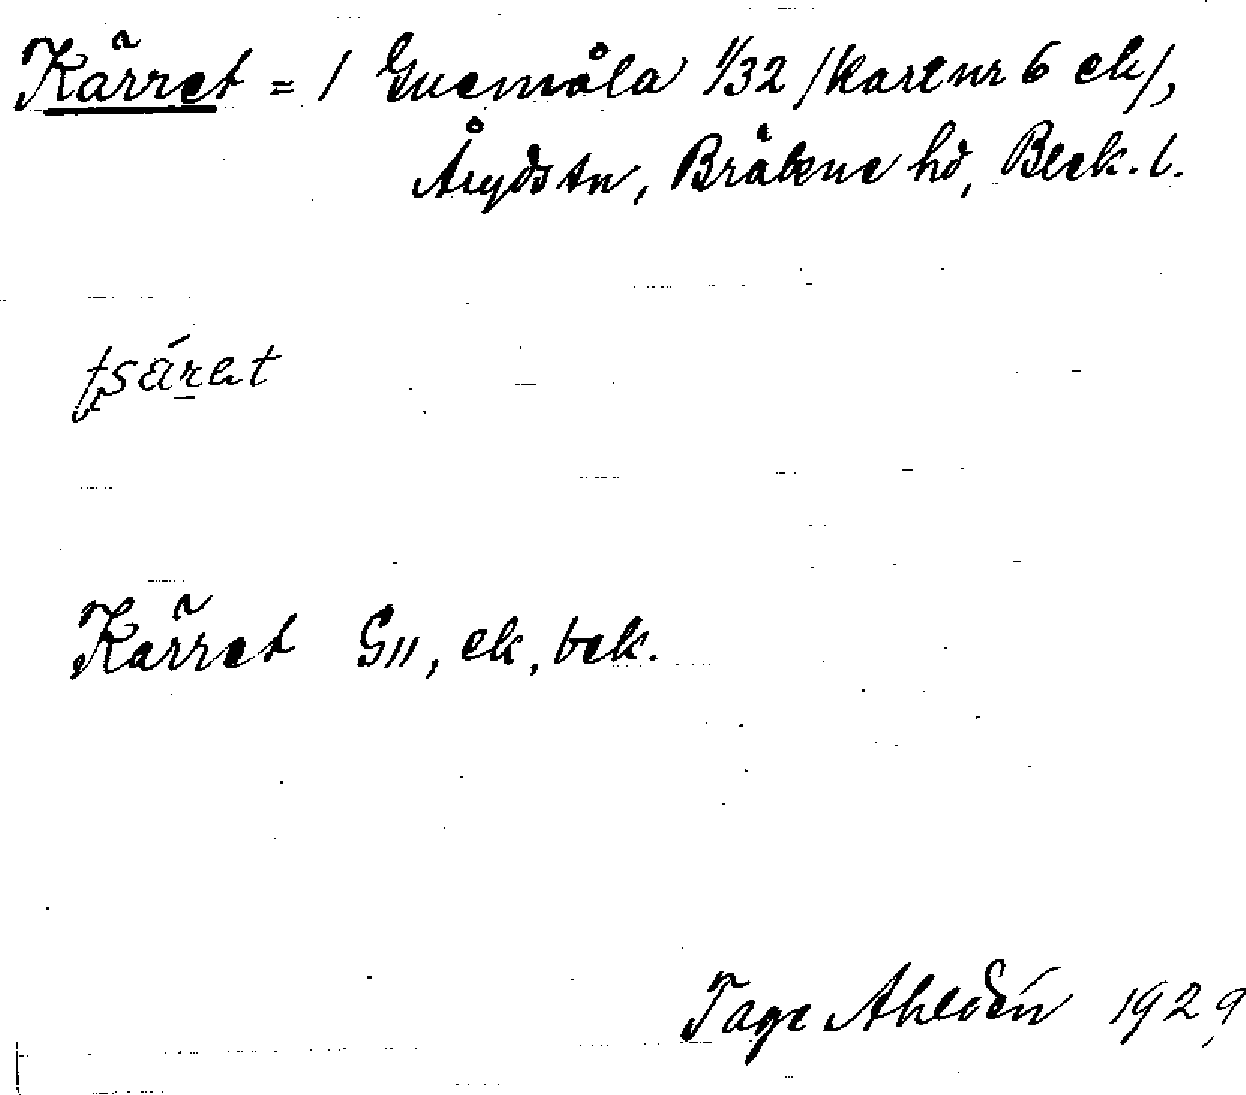 Kärret = / Enemåla 1/32 /kartnr 6 ek/,
Åryds tn, Bräkne hd, Blek. l.
Kärret G11, ek, bek.
Tage Ahldén 1929